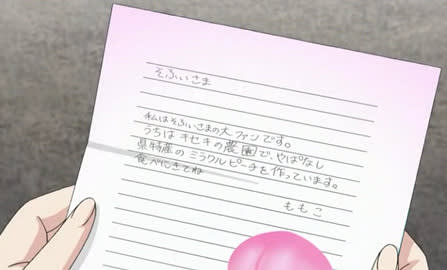 そふぃさま
私はそふぃさまの大ファンです。
うちはキセキの農園で、やぱなし
県特産のミラクルピーチを作っています。
食べにきてね
ももこ